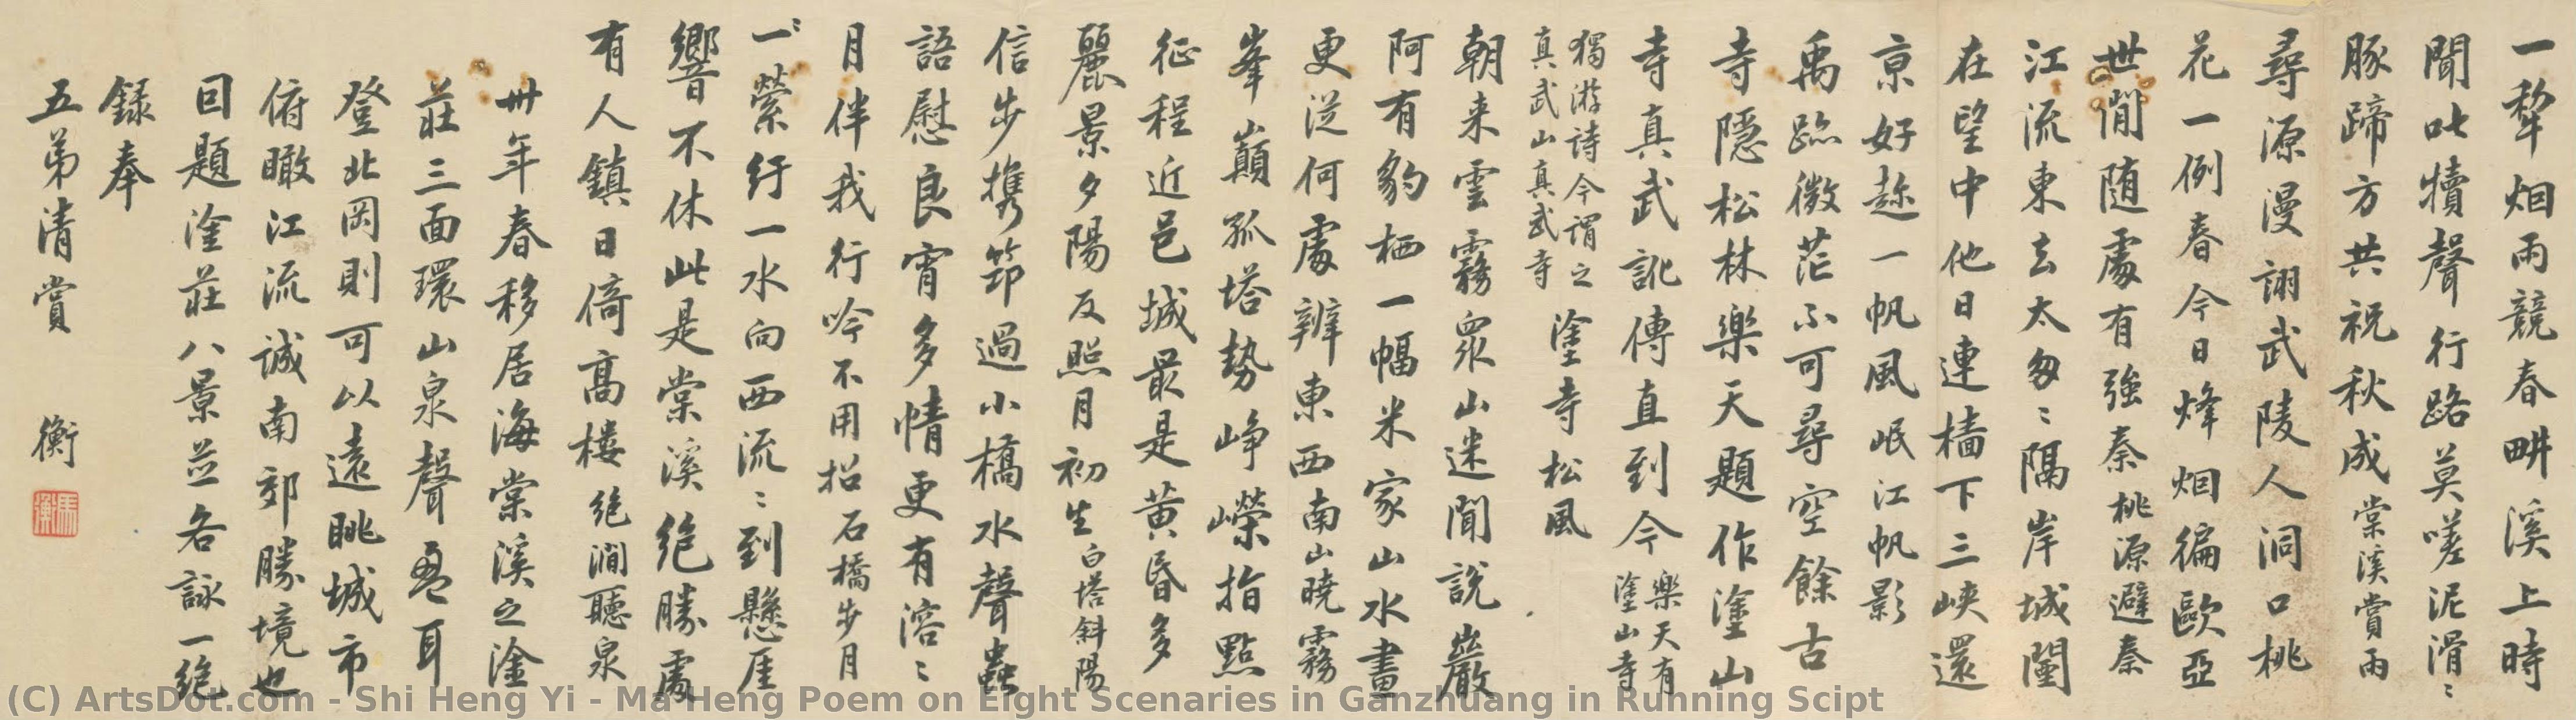 一犂烟雨競春畊溪上時
聞叱犢聲行路莫嗟泥滑〻
豚蹄方共祝秋成棠溪賞雨
尋源漫詡武陵人洞口桃
花一例春今日烽烟徧歐亞
世間随處有強秦桃源避秦
江流東去太匆〻隔岸城闉
在望中他日連樯下三峽還
京好趂一帆風岷江帆影
禹跡微茫不可尋空餘古
寺隱松林樂天題作塗山
寺真武訛傳直到今樂天有
塗山寺
獨游詩今謂之
真武山真武寺
塗寺松風
朝来雲霧衆山迷聞說巖
阿有豹栖一幅米家山水畫
更從何處辨東西南山曉霧
峯巔孤塔勢崢嶸指點
征程近邑城最是黃昏多
麗景夕陽反照月初生白塔斜陽
信步攜筇過小橋水聲蟲
語慰良宵多情更有溶〻
月伴我行吟不用招石橋步月
一〻縈紆一水向西流〻到懸厓
響不休此是棠溪絶勝處
有人鎮日倚高樓絶澗聽泉
卅年春移居海棠溪之淦
莊三面環山泉聲盈耳
登北岡則可以遠眺城市
俯瞰江流誠南郊勝境也
回題淦莊八景並各詠一絶
録奉
五弟清賞 衡
馬衡
(C) ArtsDot.com - Shi Heng Yi - Ma Heng Poem on Eight Scenaries in Ganzhuang in Running Scipt